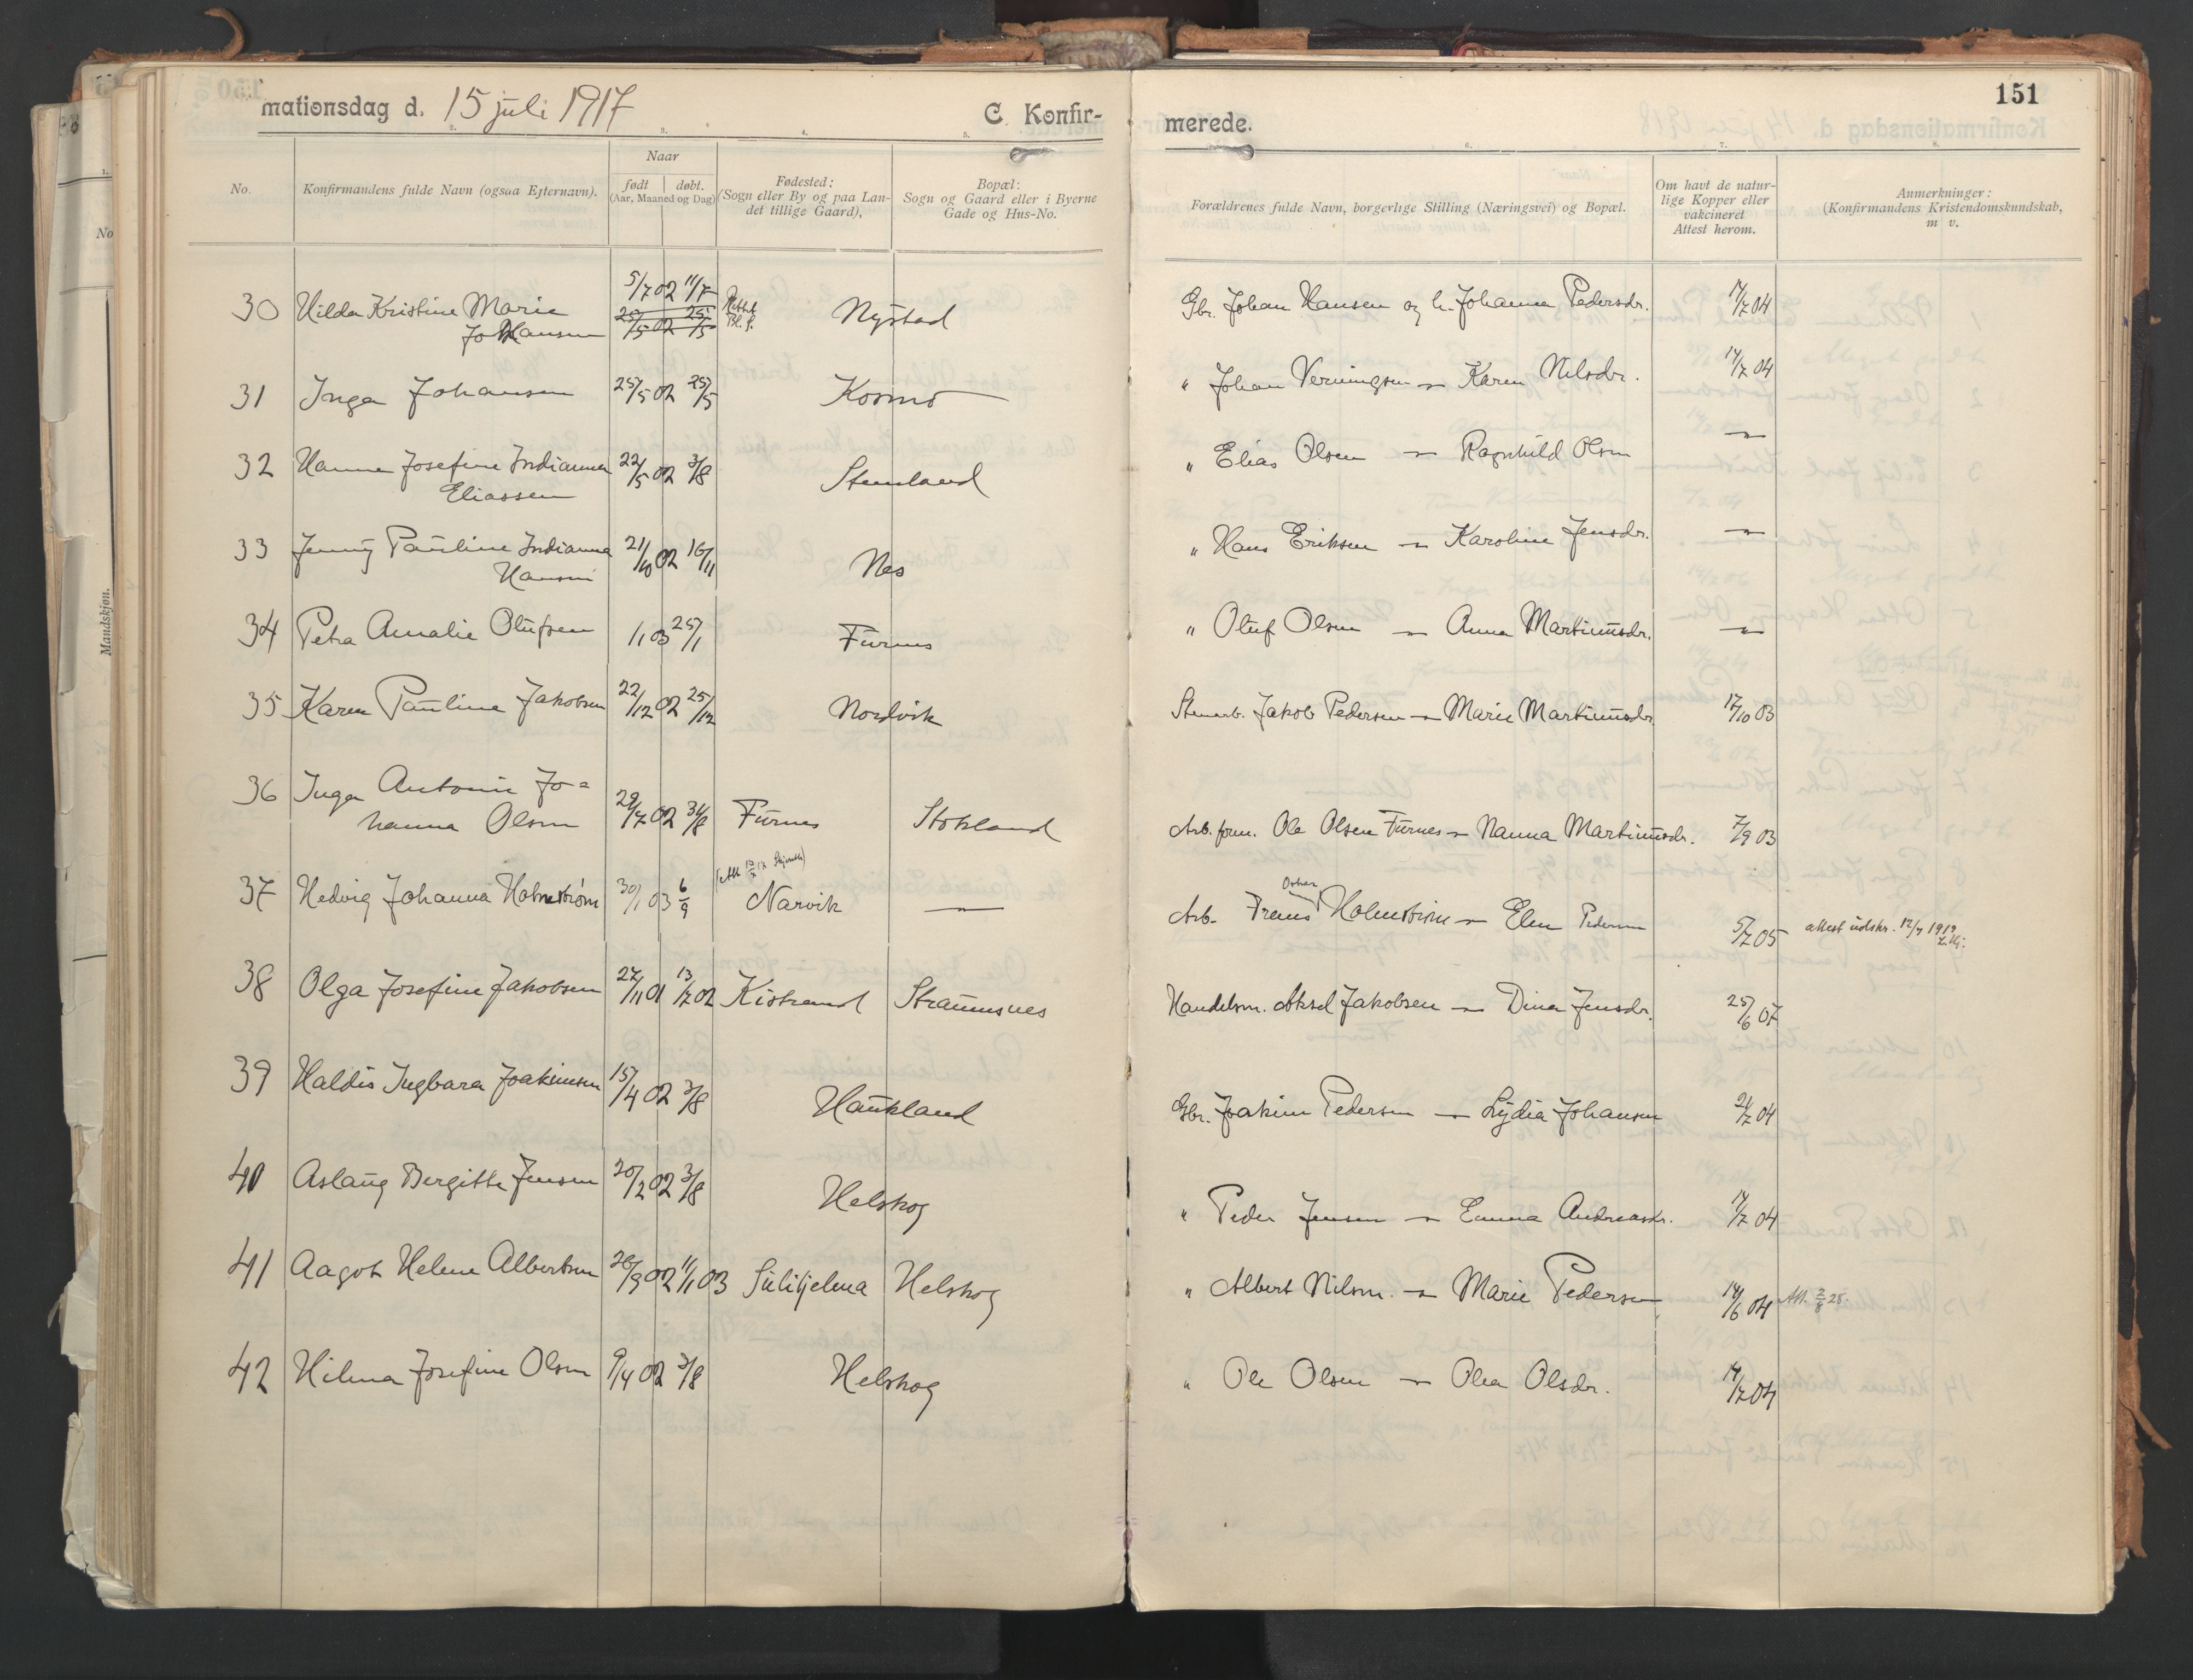 mationsdag d. 15 juli 1917
C. Konfir-
merede.
151
No.
Konfirmandens fulde Navn (ogsaa Efternavn).
Naar
født døbt.
(Aar, Maaned og Dag)
Fødested:
(Sogn eller By og paa Lan-
det tillige Gaard),
Bopæl:
Sogn og Gaard eller i Byerne
Gade og Hus-No.
Forældrenes fulde Navn, borgerlige Stilling (Næringsvei) og Bopæl.
Om havt de natur-
lige Kopper eller
vakcineret
Attest herom.
Anmerkninger:
(Konfirmandens Kristendomskundskab,
m v.
No
Mandskjøn.
30 Hilda Kristine Marie 5/7 02 11/7 Nystad Gbr. Johan Hansen og h. Johanna Pedersdr. 14/7 04
Johansen 25/5 02 25/5
31 Inga Johansen 25/5 02 25/5 Kosmo " Johan Verningsen — Karen Nilsdr. 14/7 04
32 Hanna Josefine Indianna 22/5 02 3/8 Stemland " Elias Olsen — Ragnhild Olsen —
Eliassen
33 Jenny Pauline Indianna 21/10 02 16/11 Nes " Hans Eriksen — Karoline Jensdr. —
Hansen
34 Petra Amalie Olufsen 1/1 03 25/1 Furnes " Oluf Olsen — Anna Martinusdr. —
35 Karen Pauline Jakobsen 22/12 02 25/12 Nordvik Stenarb. Jakob Pedersen — Marie Martinusdr. 17/10 03
36 Inga Antonie Jo=
hanna Olsen 29/7 02 31/8 Furnes Stokland Arb. form. Ole Olsen Furnes — Nanna Martinusdr. 7/9 03
37 Hedvig Johanna Holmstrøm 30/1 03 6/9 Narvik — Arb. Frans Oskar Holmstrøm — Elen Pedersen 5/7 05 attest udskr. 12/7 1919
38 Olga Josefine Jakobsen 27/11 01 13/7 02 Kistrand Straumsnes Handelsm. Aksel Jakobsen — Dina Jensdr. 25/6 07
39 Haldis Ingbara Joakimsen 15/4 02 3/8 Haukland Gbr. Joakim Pedersen — Lydia Johansen 21/7 04
40 Aslaug Bergitte Jensen 20/2 02 3/8 Helskog " Peder Jensen — Emma Andreasdr. 14/7 04
41 Aagot Helene Albertsen 26/9 02 11/1 03 Sulitjelma Helskog " Albert Nilsen — Marie Pedersen 14/6 04 Att. 2/8 28.
42 Hilma Josefine Olsen 9/4 02 3/8 Helskog " Ole Olsen — Olea Olsdr. 14/7 04